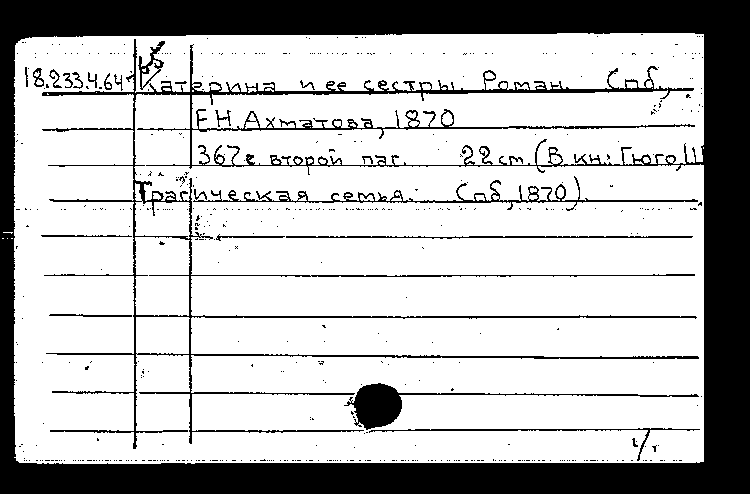 18.233.4.64 Катерина и ее сестры. Роман. Спб.,
Е.Н.Ахматова, 1870
367с. второй паг. 22 см. (В кн.: Гюго, Ш
Трагическая семья. Спб., 1870).